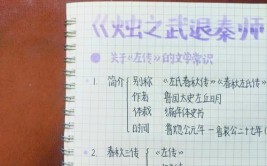 《烛之武退秦师
关于《左传》的文学常识
1. 简介 别称 《左氏春秋传》《春秋左氏传
作者 鲁国太史左丘明
体裁 编年体史书
时间 鲁隐公元年－鲁哀公二十七年（
2. 春秋三传 《左传》